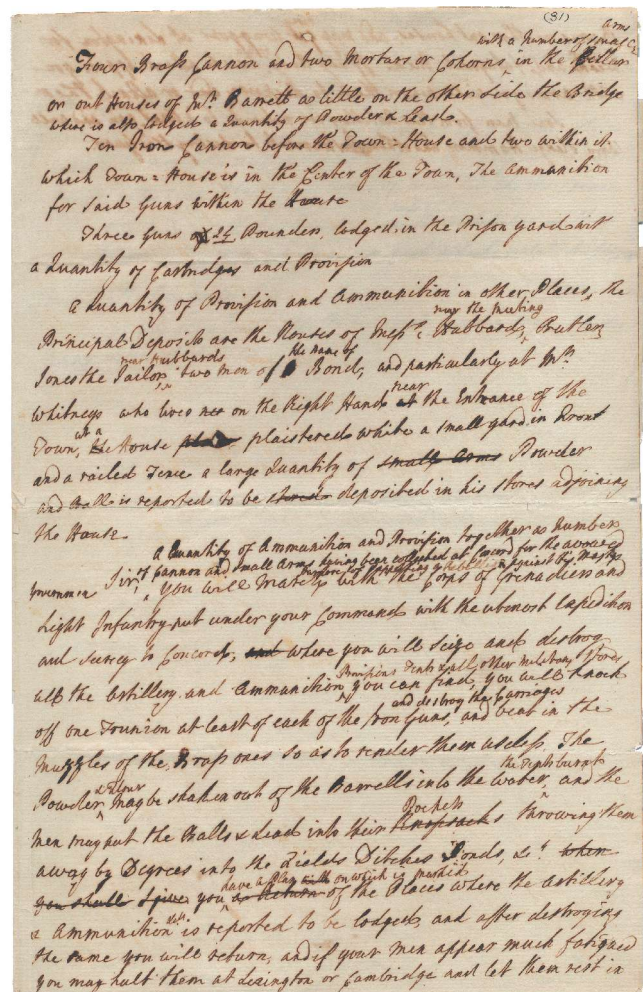 (31)
arms
with a number of small
Four Brass Cannon and two Mortars or Cohorns in the Cellar
or out Houses of Mr. Barrett a little on the other side the Bridge
where is also lodged a Quantity of Powder & Lead.
Ten Iron Cannon before the Town=House and two within it
which Town=House is in the Center of the Town, The ammunition
for said Guns within the House
Three Guns 24 Pounders, lodged in the Prison yard with
a Quantity of Cartridges and Provision
a Quantity of Provision and Ammunition in other Places, the
near the meeting
Principal Deposits are the Houses of Messrs. Hubbard,
near Hubbards the name of
Jones the Taylor, two men of Bond, and particularly at Mr.
near
Whitneys who lives on the Right Hand at the Entrance of the
Town, House plaistered white a small yard in Front
and a railed Fence a large Quantity of small arms Powder
and Ball is reported to be deposited in his stores adjoining
the House.
A Quantity of Ammunition and Provision together a Number
of Cannon and small Arms having been collected at Concord for the avowed
Sir, You will March with the Corps of Grenadiers and
Light Infantry put under your Command with the utmost Expedition
and Secrecy to Concord, and where you will seize and destroy
Provisions Tents & all other military stores
all the Artillery and Ammunition you can find, you will knock
and destroy the Carriages
off one Trunion at least of each of the Iron Guns, and beat in the
Muzzles of the Brass ones so as to render them useless, The
& Flour the Tents burnt
Powder may be shaken out of the Barrells into the water, and the
Pockets
Men may put the Balls & lead into their Knapsacks throwing them
away by Degrees into the Fields Ditches Ponds, &c. when
have a Plan on which is marked
you shall you a Return of the Places where the Artillery
& Ammunition &c. is reported to be lodged, and after destroying
the same you will return, and if your Men appear much fatigued
you may halt them at Lexington or Cambridge and let them rest in